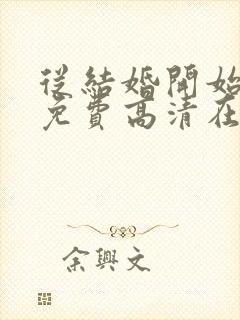 從結婚開始
免費高清在
余興文